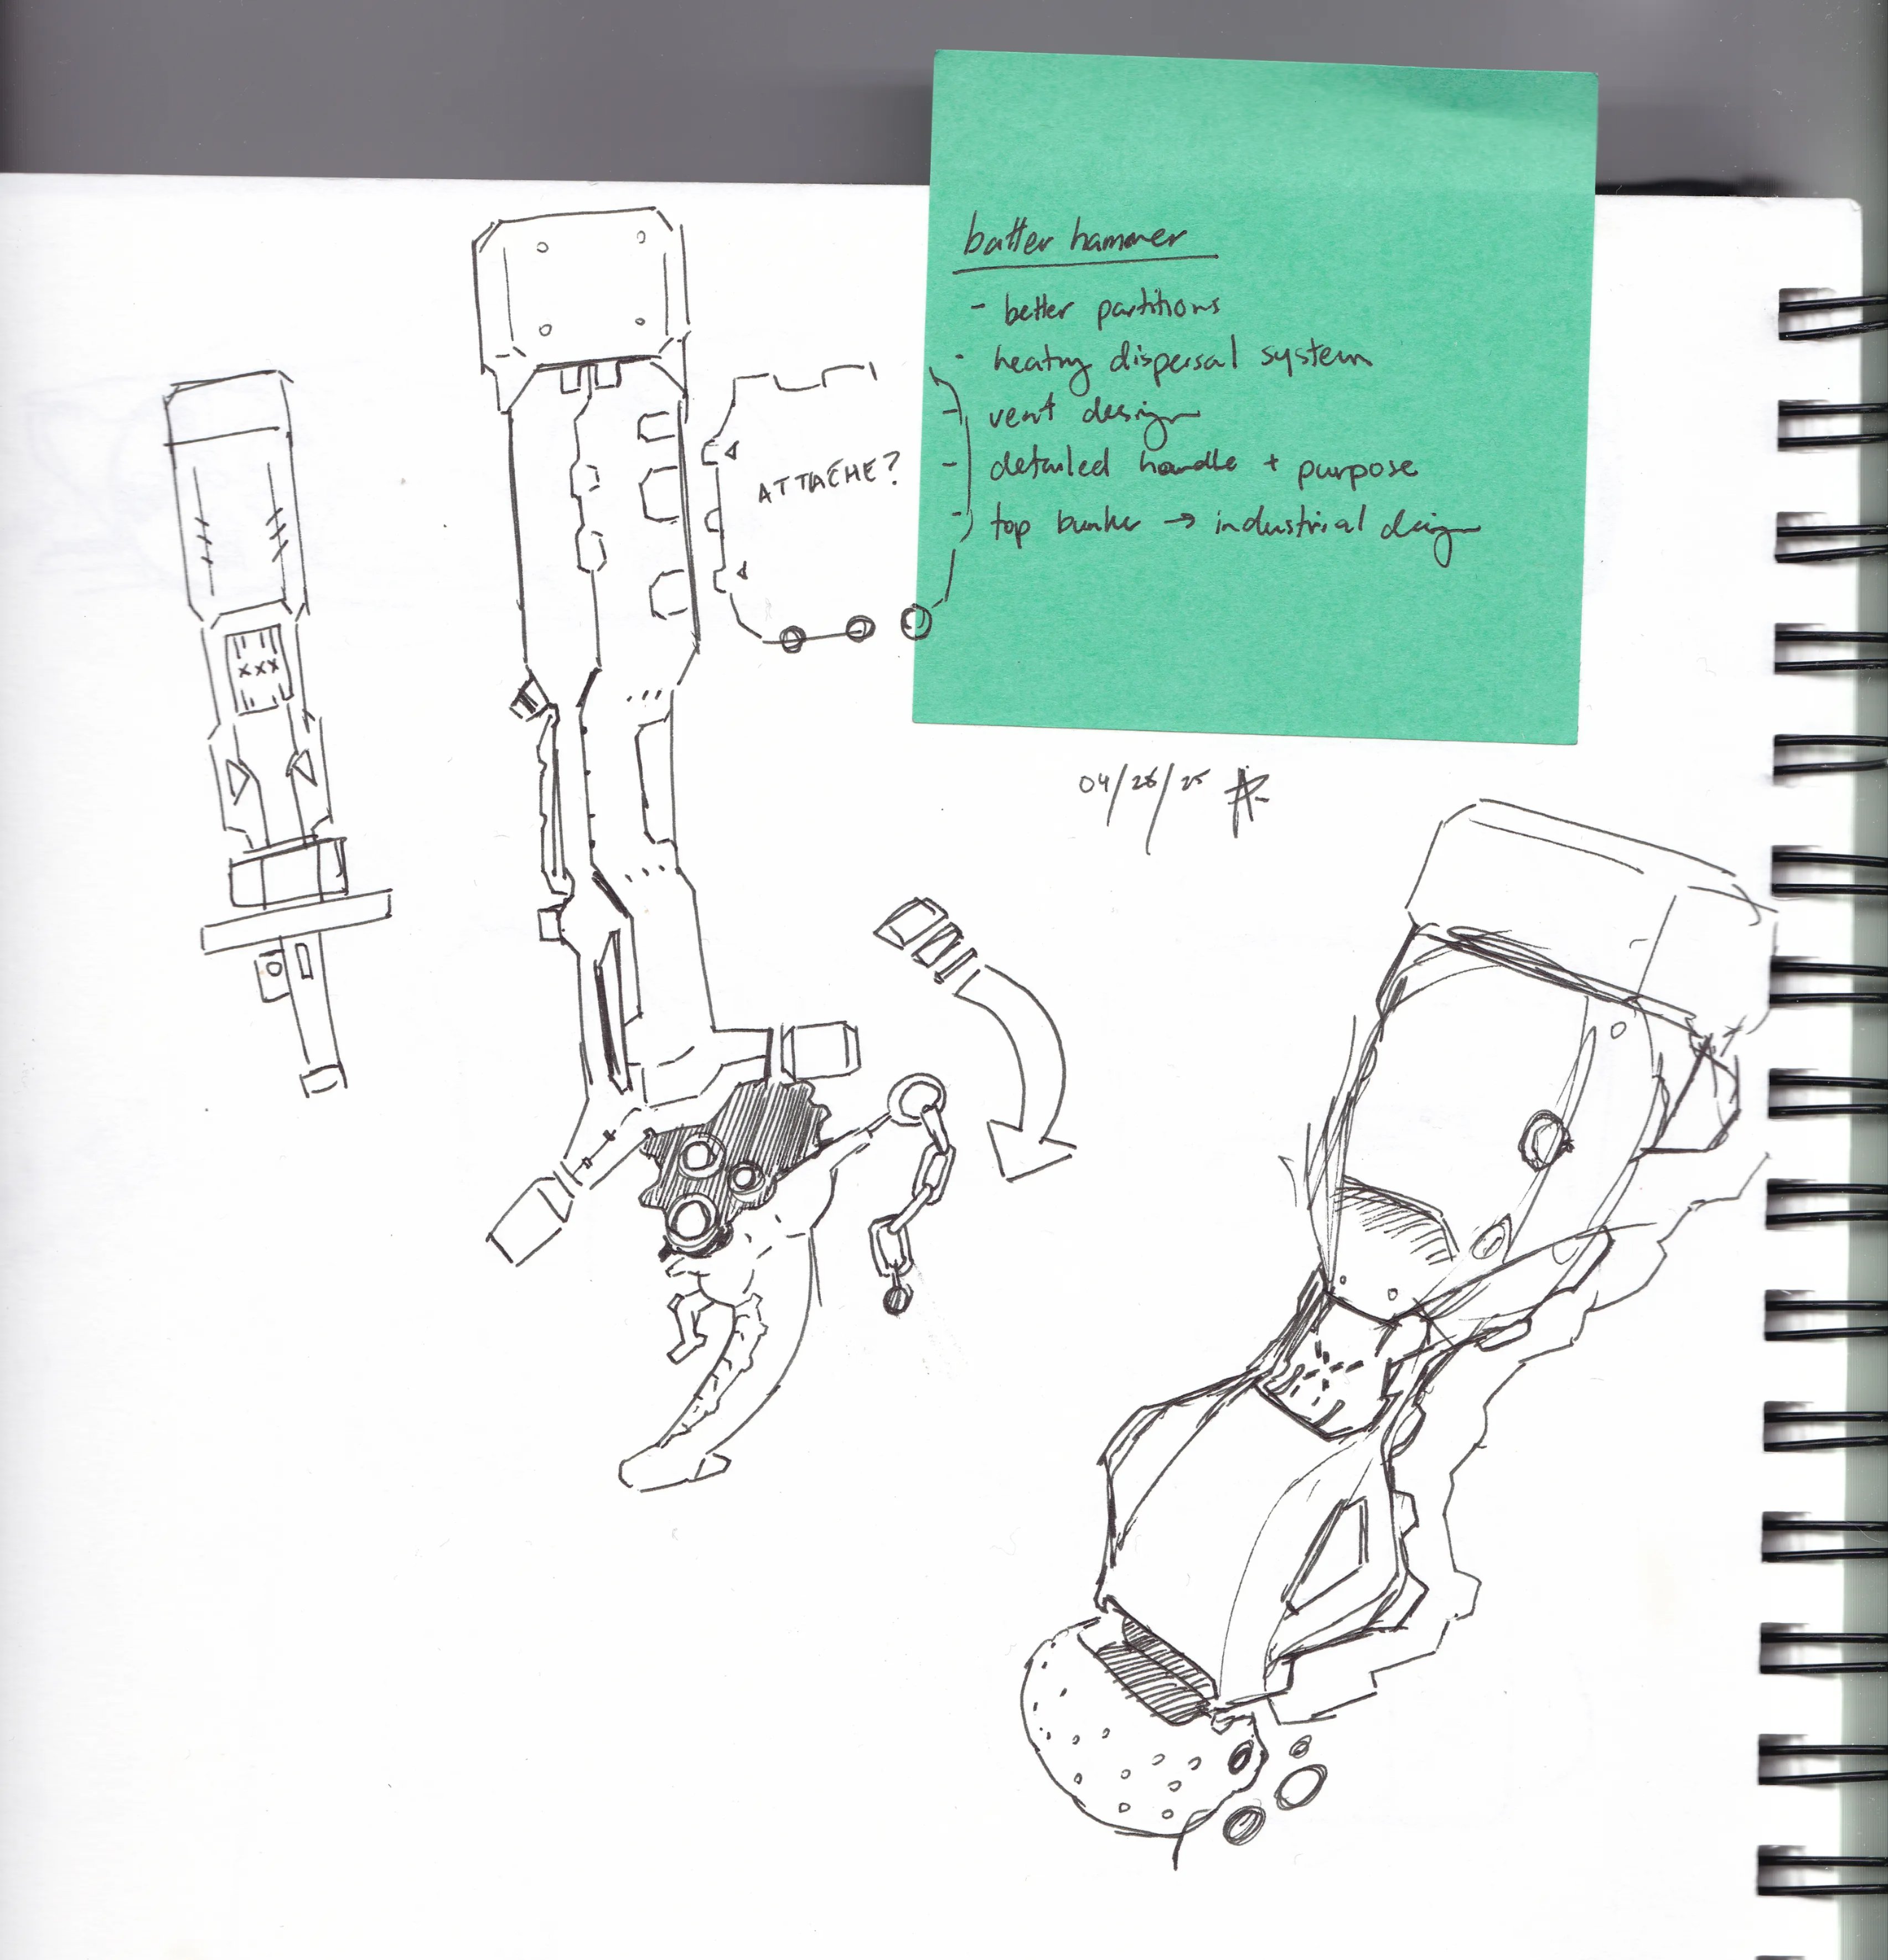 batter hammer
- better partitions
- heating dispersal system
- vent design
- detailed handle + purpose
- top bunker → industrial design
ATTACHE?
xxx
04/28/25